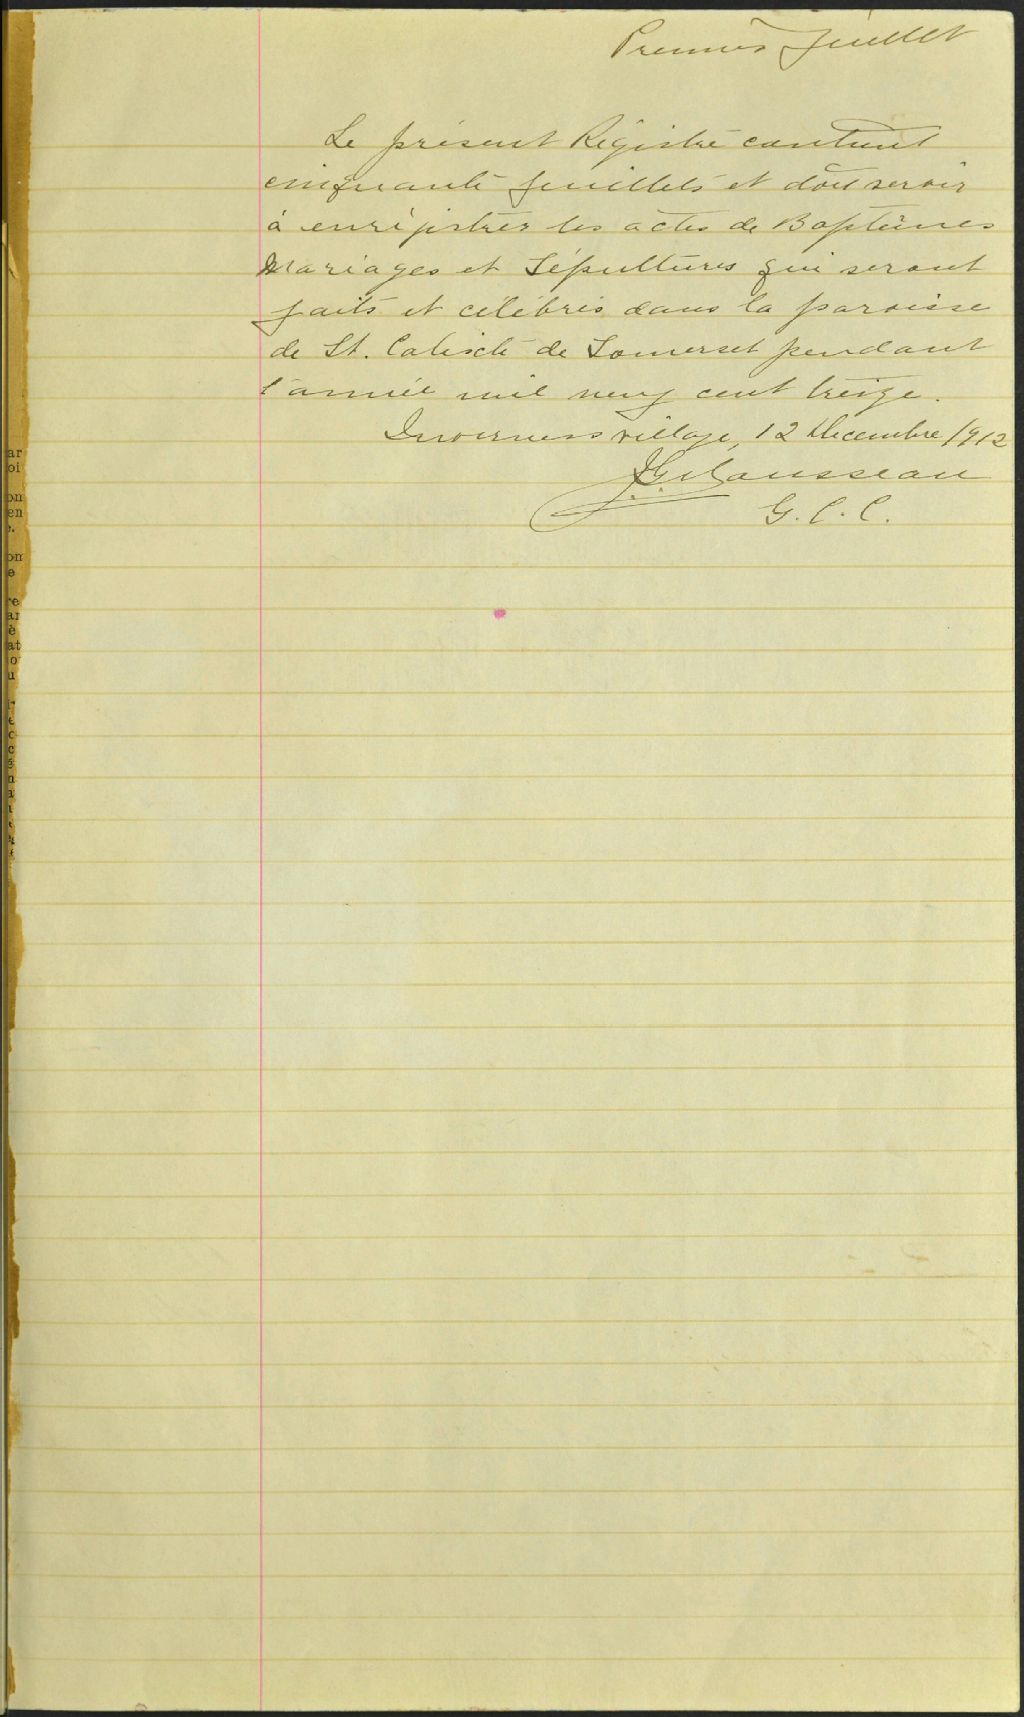 Premier feuillet
Le présent Régistre contient
cinquante feuillets et doit servir
à enrégistrer les actes de Baptêmes
Mariages et Sépultures qui seront
faits et célébrés dans la paroisse
de St. Calixte de Somerset pendant
l'année mil neuf cent treize.
Inverness village, 12 Decembre 1912
Rousseau
G. C. C.
ar
oi
on
en
e.
on
e
re
ar
è
at
o
u